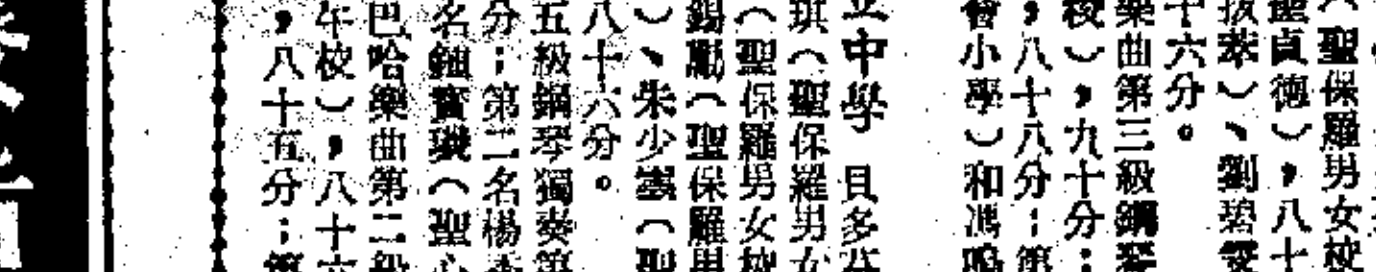 （聖保羅男女校
聖貞德），八十
拔萃）、劉碧雯
十六分。
樂曲第三級鋼琴
校），九十分；
，八十八分；第
會小學）和馮鳴
立中學 貝多芬
琪（聖保羅男女
（聖保羅男女校
錫（聖保羅男
）、朱少（聖
八十六分。
五級鋼琴獨奏第
分；第二名楊
名鍾寶（聖心
巴哈樂曲第二級
午校），八十六
，八十五分；第